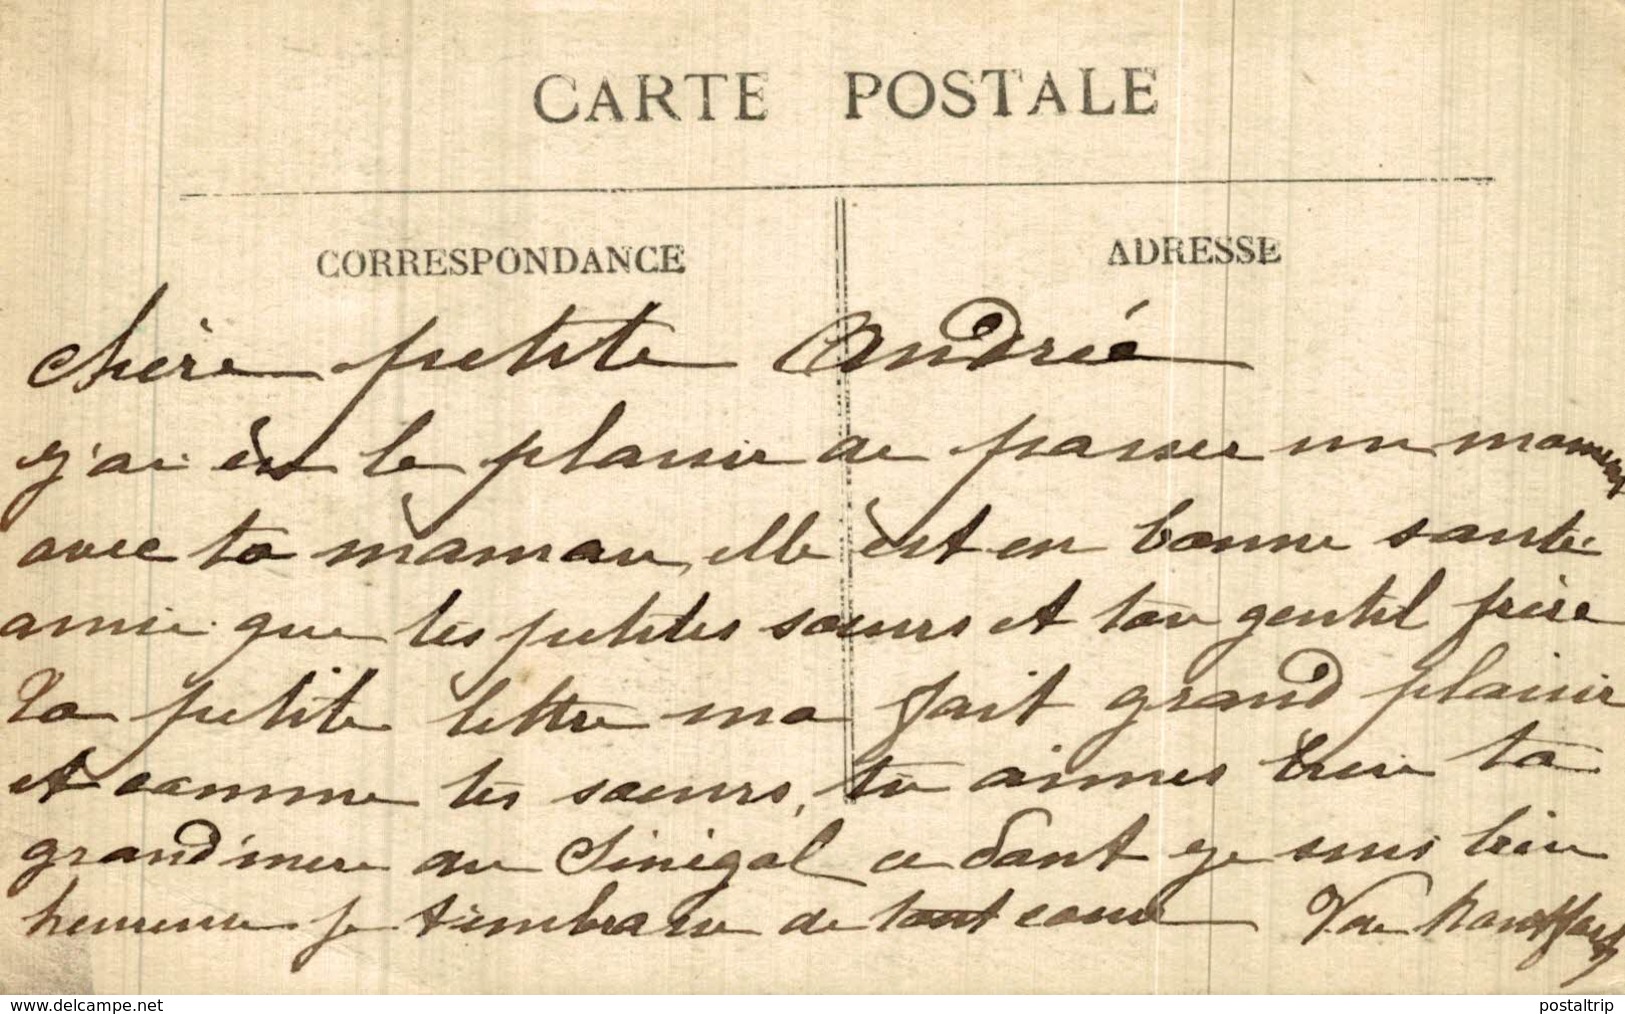 CARTE POSTALE
CORRESPONDANCE
ADRESSE
chère petite Andrée
j'ai eu le plaisir de passer un moment
avec ta maman, elle est en bonne santé
ainsi que tes petites soeurs et ton gentil frère
Ta petite lettre ma fait grand plaisir
et comme tes soeurs, tu aimes bien ta
grand'mère au Sinégal ce dont je suis bien
heureuse je t'embrasse de tout coeur
www.delcampe.net
postaltrip